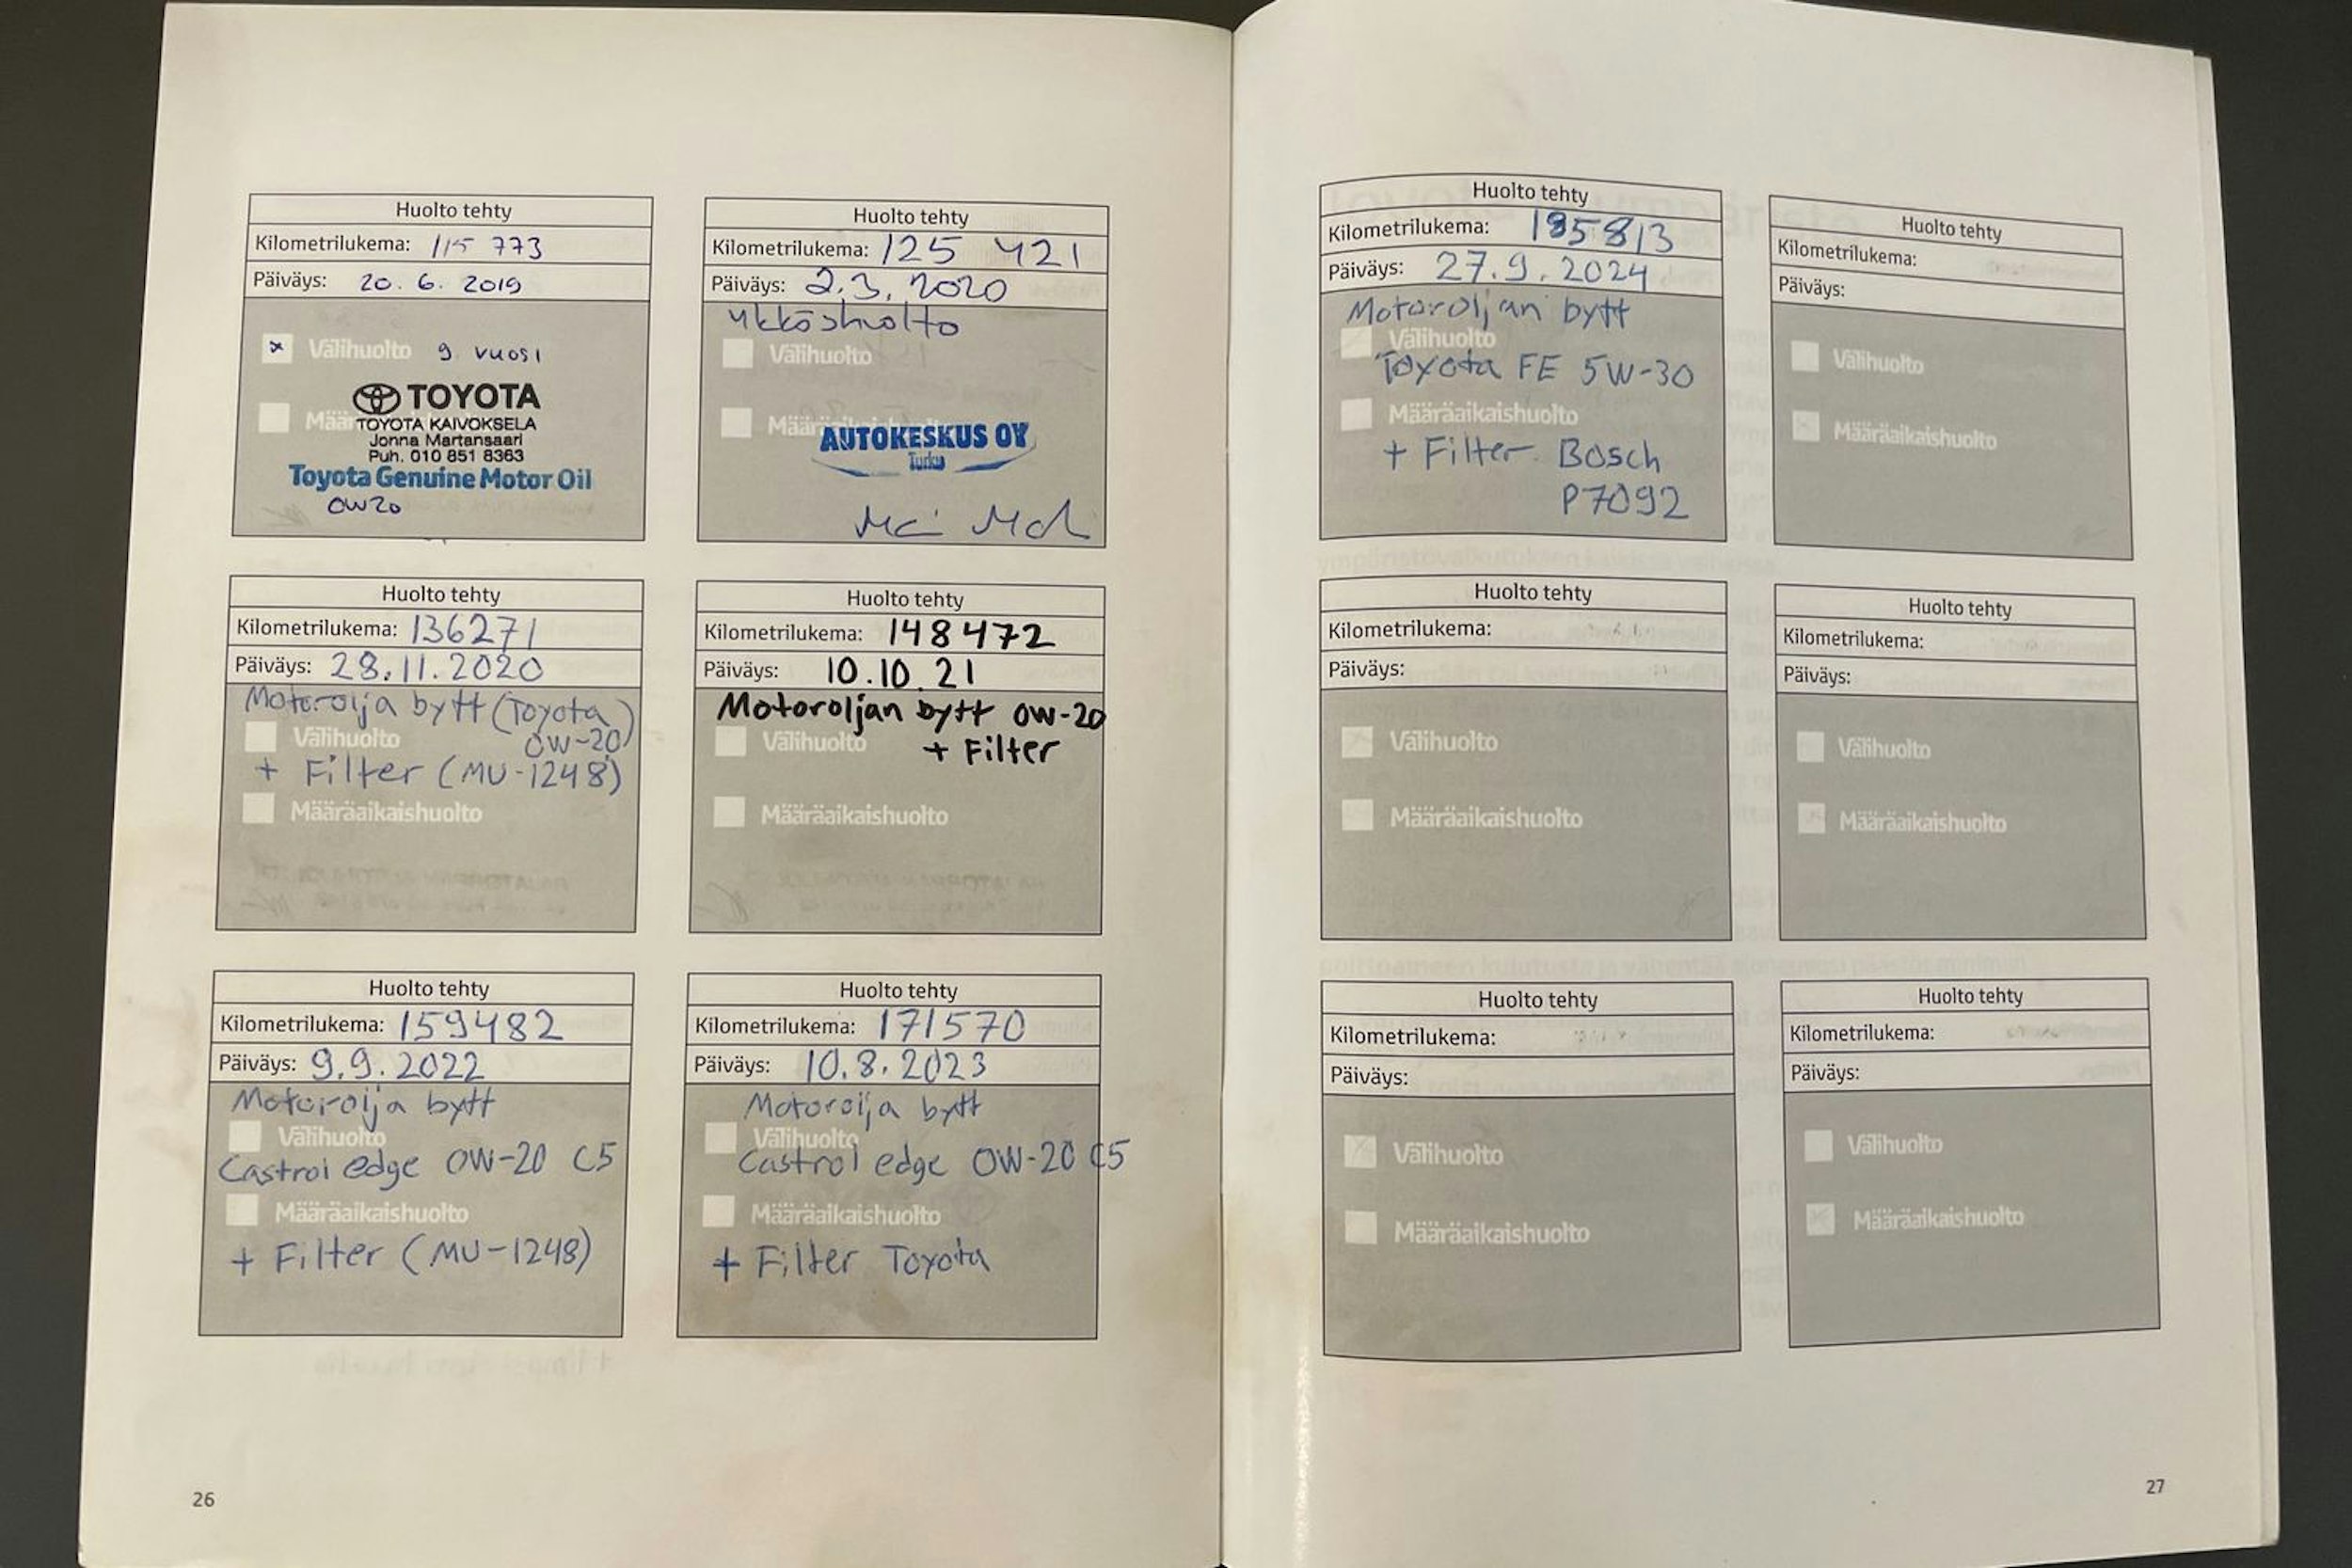 Huolto tehty
Kilometrilukema: 115 773
Päiväys: 20. 6. 2019
x Välihuolto 9 vuosi
TOYOTA
TOYOTA KAIVOKSELA
Jonna Martansaari
Puh. 010 851 8363
Toyota Genuine Motor Oil
0W20
Huolto tehty
Kilometrilukema: 125 421
Päiväys: 2.3.2020
ykköshuolto
Välihuolto
AUTOKESKUS OY
Turku
Huolto tehty
Kilometrilukema: 136271
Päiväys: 28.11.2020
Motorolja bytt (Toyota
Välihuolto 0W-20)
+ Filter (MU-1248)
Määräaikaishuolto
Huolto tehty
Kilometrilukema: 148472
Päiväys: 10.10.21
Motoroljan bytt 0W-20
Välihuolto + Filter
Määräaikaishuolto
Huolto tehty
Kilometrilukema: 159482
Päiväys: 9.9.2022
Motorolja bytt
Välihuolto
Castrol edge 0W-20 C5
Määräaikaishuolto
+ Filter (MU-1248)
Huolto tehty
Kilometrilukema: 171570
Päiväys: 10.8.2023
Motorolja bytt
Välihuolto
Castrol edge 0W-20 C5
Määräaikaishuolto
+ Filter Toyota
26
Huolto tehty
Kilometrilukema: 185813
Päiväys: 27.9.2024
Motoroljan bytt
Välihuolto
Toyota FE 5W-30
Määräaikaishuolto
+ Filter Bosch
P7092
Huolto tehty
Kilometrilukema:
Päiväys:
Välihuolto
Määräaikaishuolto
Huolto tehty
Kilometrilukema:
Päiväys:
Välihuolto
Määräaikaishuolto
Huolto tehty
Kilometrilukema:
Päiväys:
Välihuolto
Määräaikaishuolto
Huolto tehty
Kilometrilukema:
Päiväys:
Välihuolto
Määräaikaishuolto
Huolto tehty
Kilometrilukema:
Päiväys:
Välihuolto
Määräaikaishuolto
27